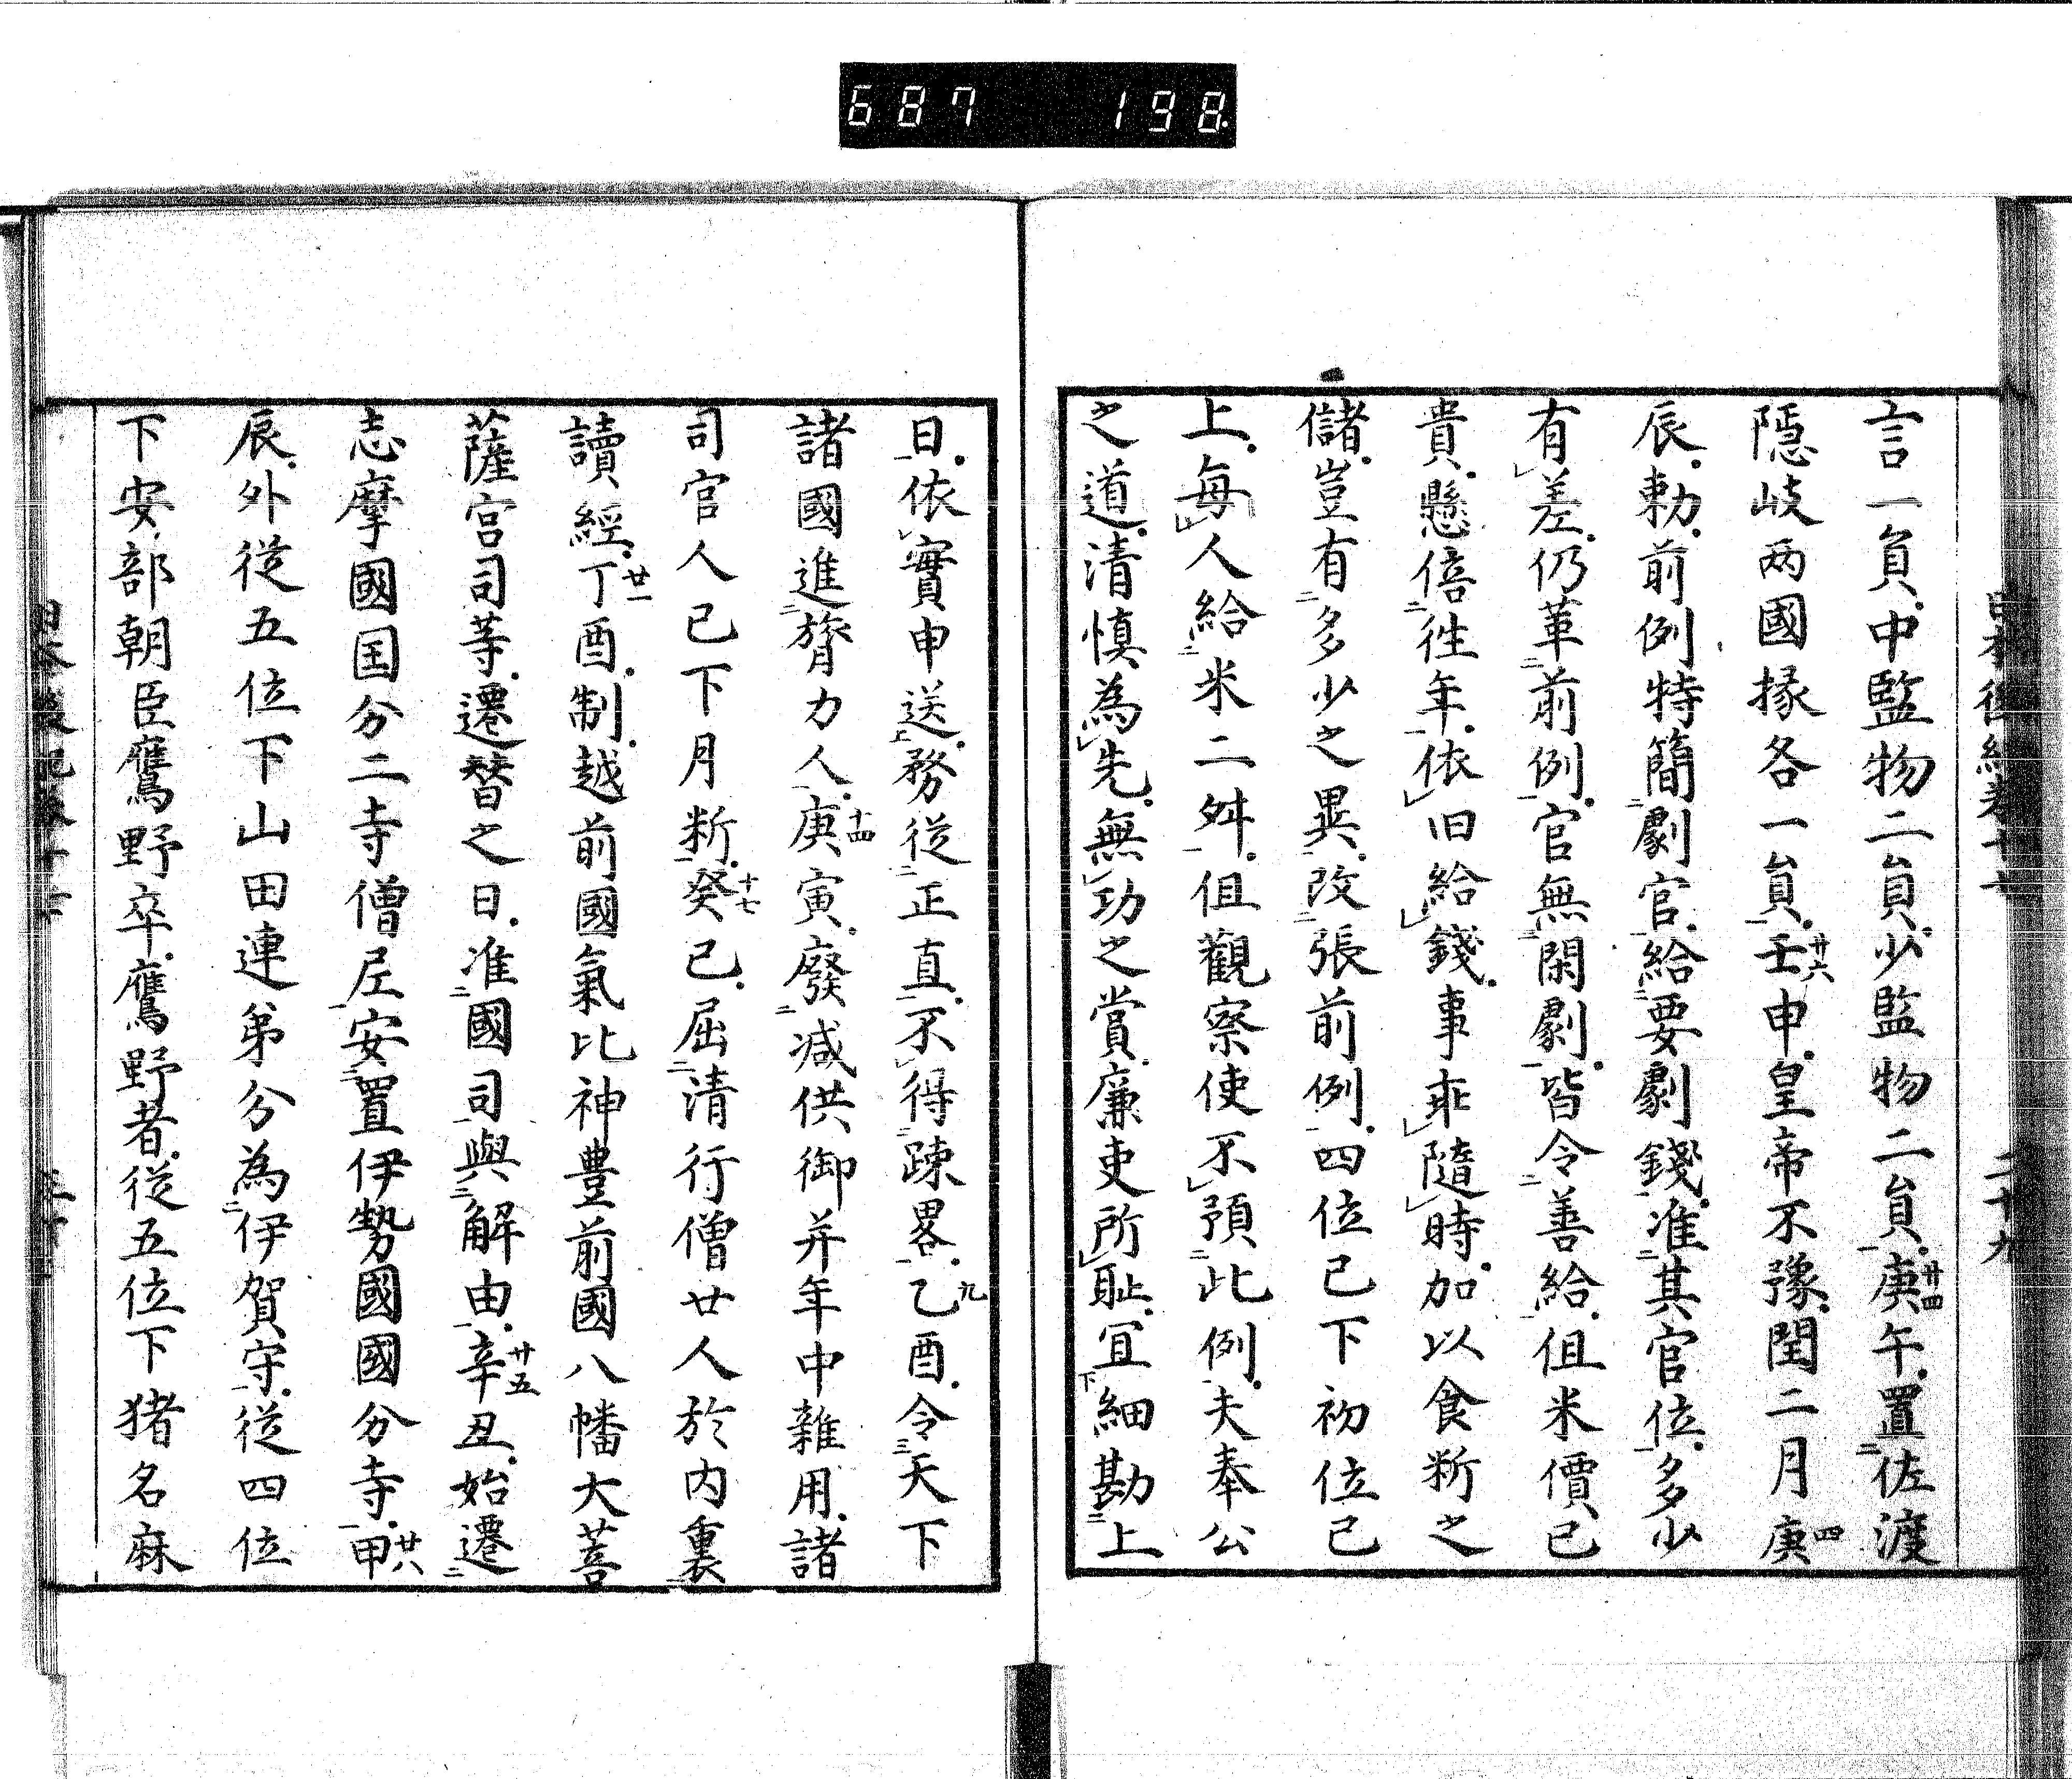 687 198.
言一負中監物二員少監物二員庚廿四午置佐渡
隠岐両國掾各一員壬廿六申皇帝不豫閏二月庚四
辰勅前例特簡劇官給要劇錢准其官位多少
有差仍革前例官無閑劇皆令善給但米價已
貴懸倍徃年依旧給錢事乖隨時加以食断之
儲豈有多少之異改張前例四位已下初位已
上毎人給米二舛但觀察使不預此例夫奉公
之道清慎為先無功之賞廉吏所耻宜細勘上
日依實申送務從正直不得踈畧乙九酉令天下
諸國進膂力人庚十四寅廢减供御并年中雜用諸
司官人已下月断癸十七巳屈清行僧廿人於内裏
讀經丁廿一酉制越前國氣比神豊前國八幡大菩
薩宮司等遷替之日准國司與解由辛廿五丑始遷
志摩國国分二寺僧尼安置伊勢國國分寺甲廿八
辰外従五位下山田連弟分為伊賀守従四位
下安部朝臣鷹野卒鷹野者従五位下猪名麻